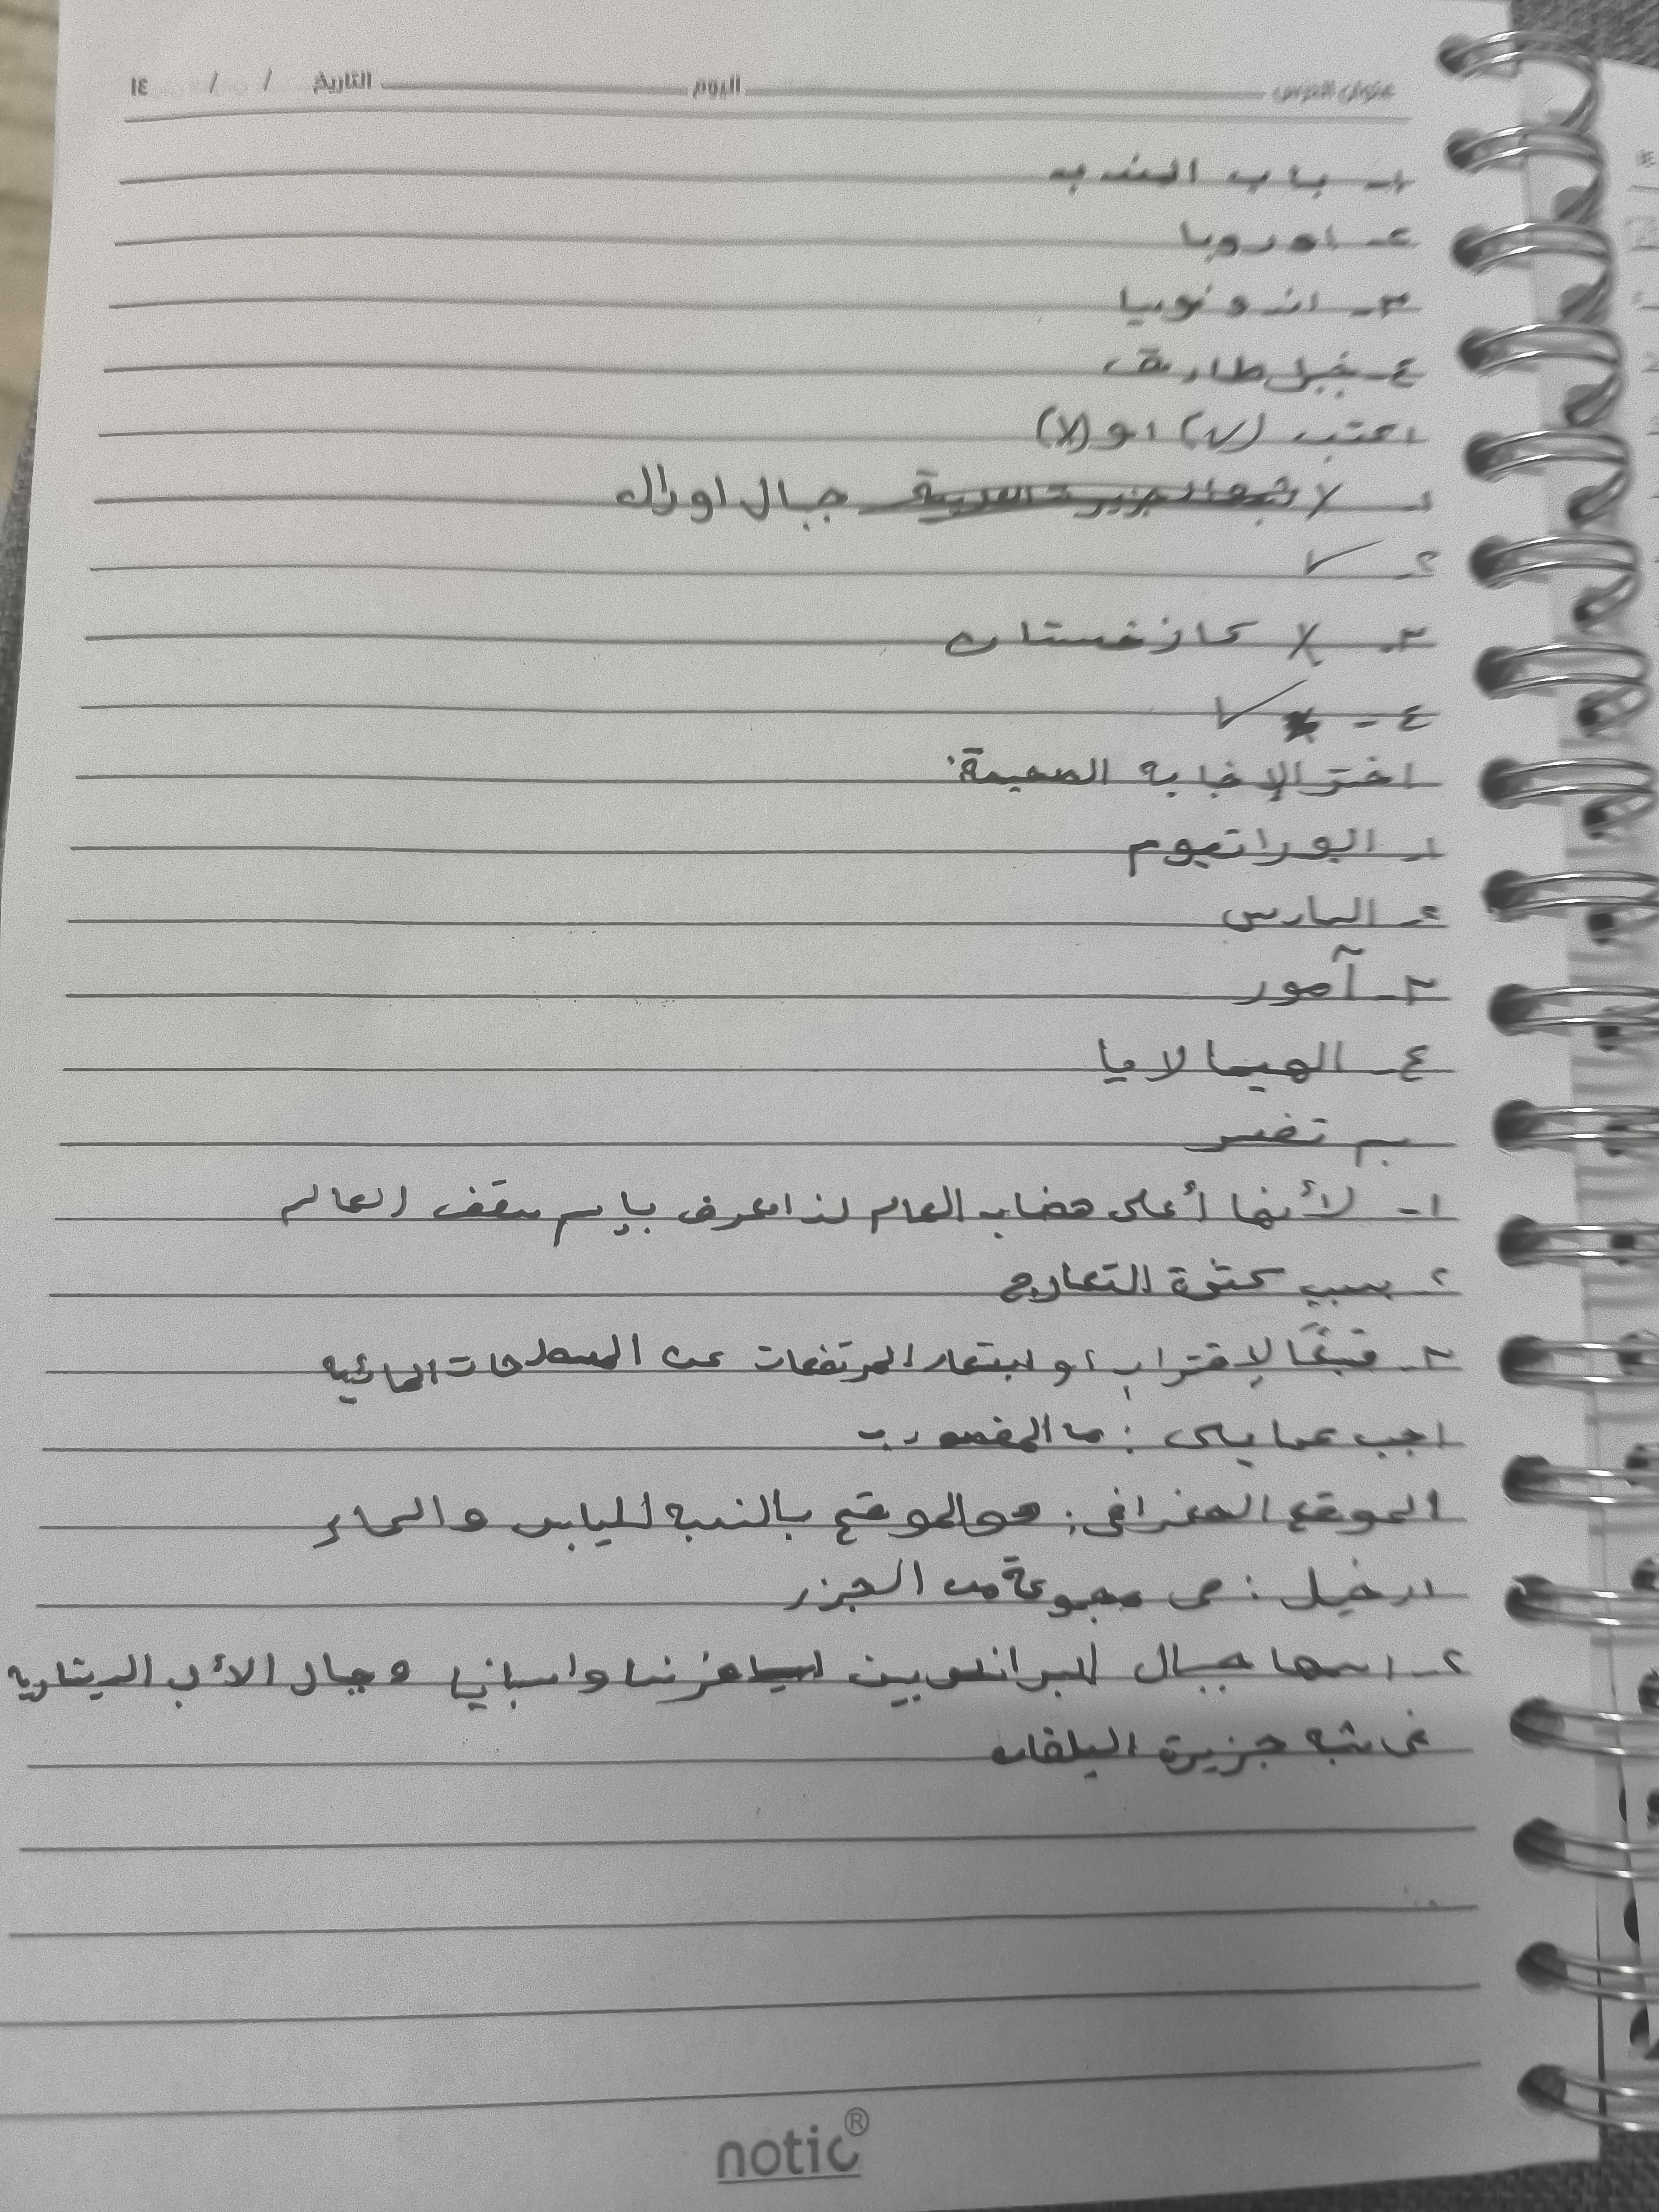 عنوان الدرس اليوم التاريخ / / ١٤
١- باب المندب
٢- اوروبا
٣- اندونوسيا
٤- جبل طارق
اكتب (✓) او (X)
١- X شبه الجزيرة العربية جبال اورال
٢- ✓
٣- X كازخستان
٤- ✓
اختر الإجابه الصحيحة:
١- البوراتيوم
٢- المارس
٣- آمور
٤- الهيمالايا
بم تفسر
١- لأنها أعلى هضاب العالم لذا تعرف بإسم سقف العالم
٢- بسبب كثرة التعاريج
٣- تبعًا لإقتراب او ابتعاد المرتفعات عن المسطحات المائيه
اجب عما يلي : ما المقصود ب
الموقع الجغرافي: هو الموقع بالنسبه لليابس والماء
ارخبيل : هي مجموعة من الجزر
٢- اسمها جبال البرانس بين فرنسا واسبانيا وجبال الألب الدينارية
في شبه جزيرة البلقان
notic®